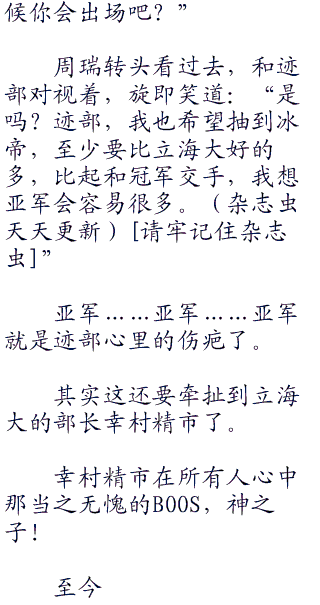 候你会出场吧？”
周瑞转头看过去，和迹
部对视着，旋即笑道：“是
吗？迹部，我也希望抽到冰
帝，至少要比立海大好的
多，比起和冠军交手，我想
亚军会容易很多。（杂志虫
天天更新）[请牢记住杂志
虫]”
亚军……亚军……亚军
就是迹部心里的伤疤了。
其实这还要牵扯到立海
大的部长幸村精市了。
幸村精市在所有人心中
那当之无愧的BOOS，神之
子！
至今